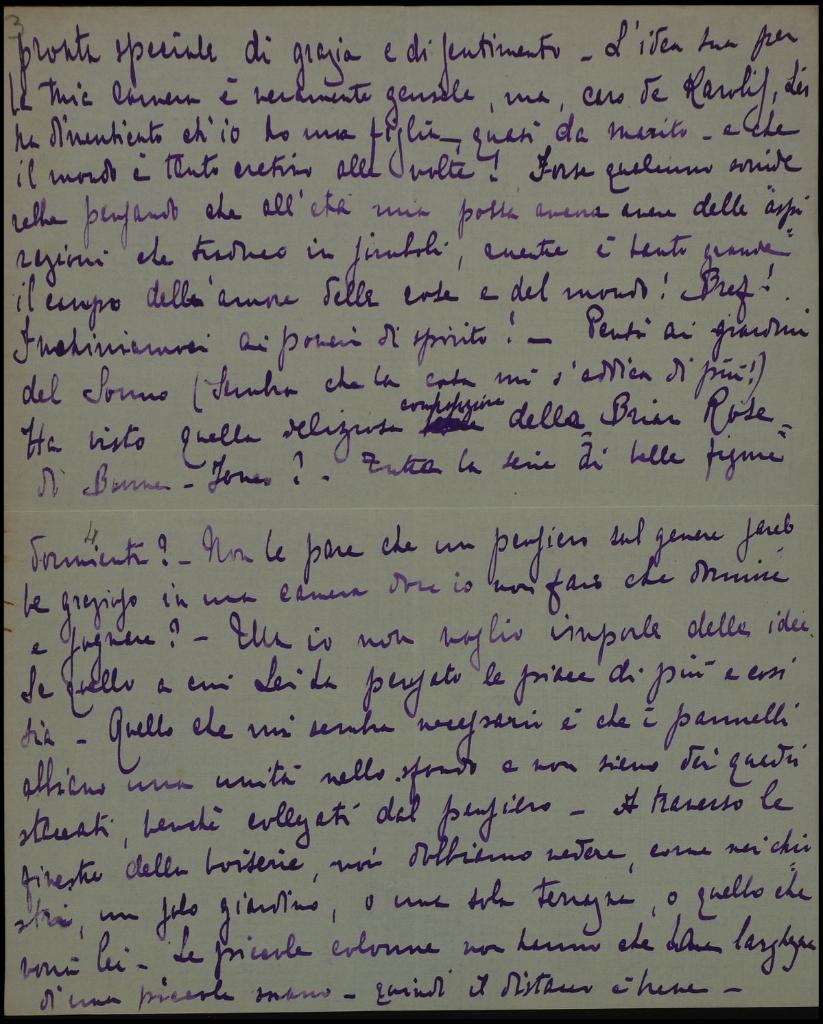 3
pronta speciale di grazia e di sentimento – L'idea sua per
la mia camera è veramente geniale, ma, caro de Karolis, Lei
ha dimenticato ch'io ho una figlia, quasi da marito – e che
il mondo è tanto cretino alle volte! Forse qualcuno sornide
rebbe pensando che all'età mia possa ancora avere delle aspi
razioni che traduco in simboli, mentre è tanto grande
il campo dell'amore delle cose e del mondo! Bref!
Inchiniamoci ai poveri di spirito! – Pensi ai giardini
del Sonno (Sembra che la cosa mi s'addica di più!)
Ha visto quella deliziosa composizione della Briar Rose
di Burne-Jones? – Tutta la serie di belle figure
4
dormienti? – Non le pare che un pensiero sul genere sareb
be grazioso in una camera dove io non farò che dormire
e sognare? – Ma io non voglio imporle delle idee.
Se quello a cui Lei ha pensato le piace di più e così
sia – Quello che mi sembra necessario è che i pannelli
abbiano una unità nello sfondo e non sieno dei quadri
staccati, benchè collegati dal pensiero – A traverso le
finestre della boiserie, noi dobbiamo vedere, come nei chio
stri, un solo giardino, o una sola terrazza, o quello che
vorrà lei – Le piccole colonne non hanno che larghezza
di una piccola mano – quindi il distacco è breve –